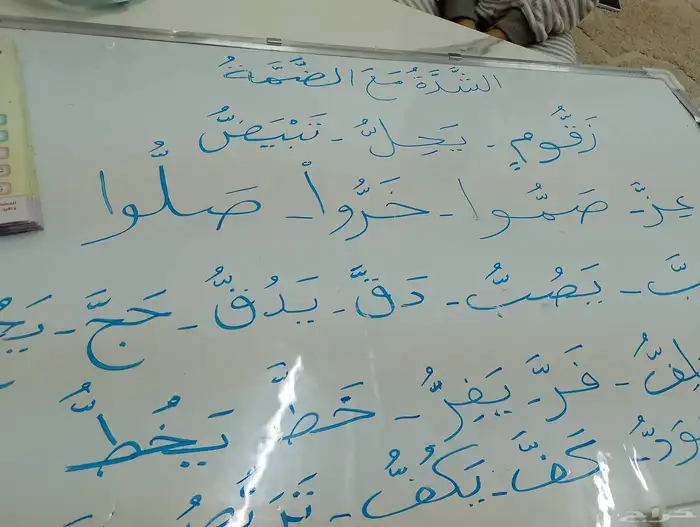 الشَّدَّةُ مَعَ الضَّمَّةُ
زَقُّومٍ - يَحِلُّ - تَبْيَضُّ
عِزَّ - صَمُّوا - خَرُّواْ - صَلُّوا
بَّ - يَصُبُّ - دَقَّ - يَدُقُّ - حَجَّ -
فَرَّ - يَفِرُّ - خَطَّ - يَخُطُّ
كَفَّ - يَكُفُّ -
حراج